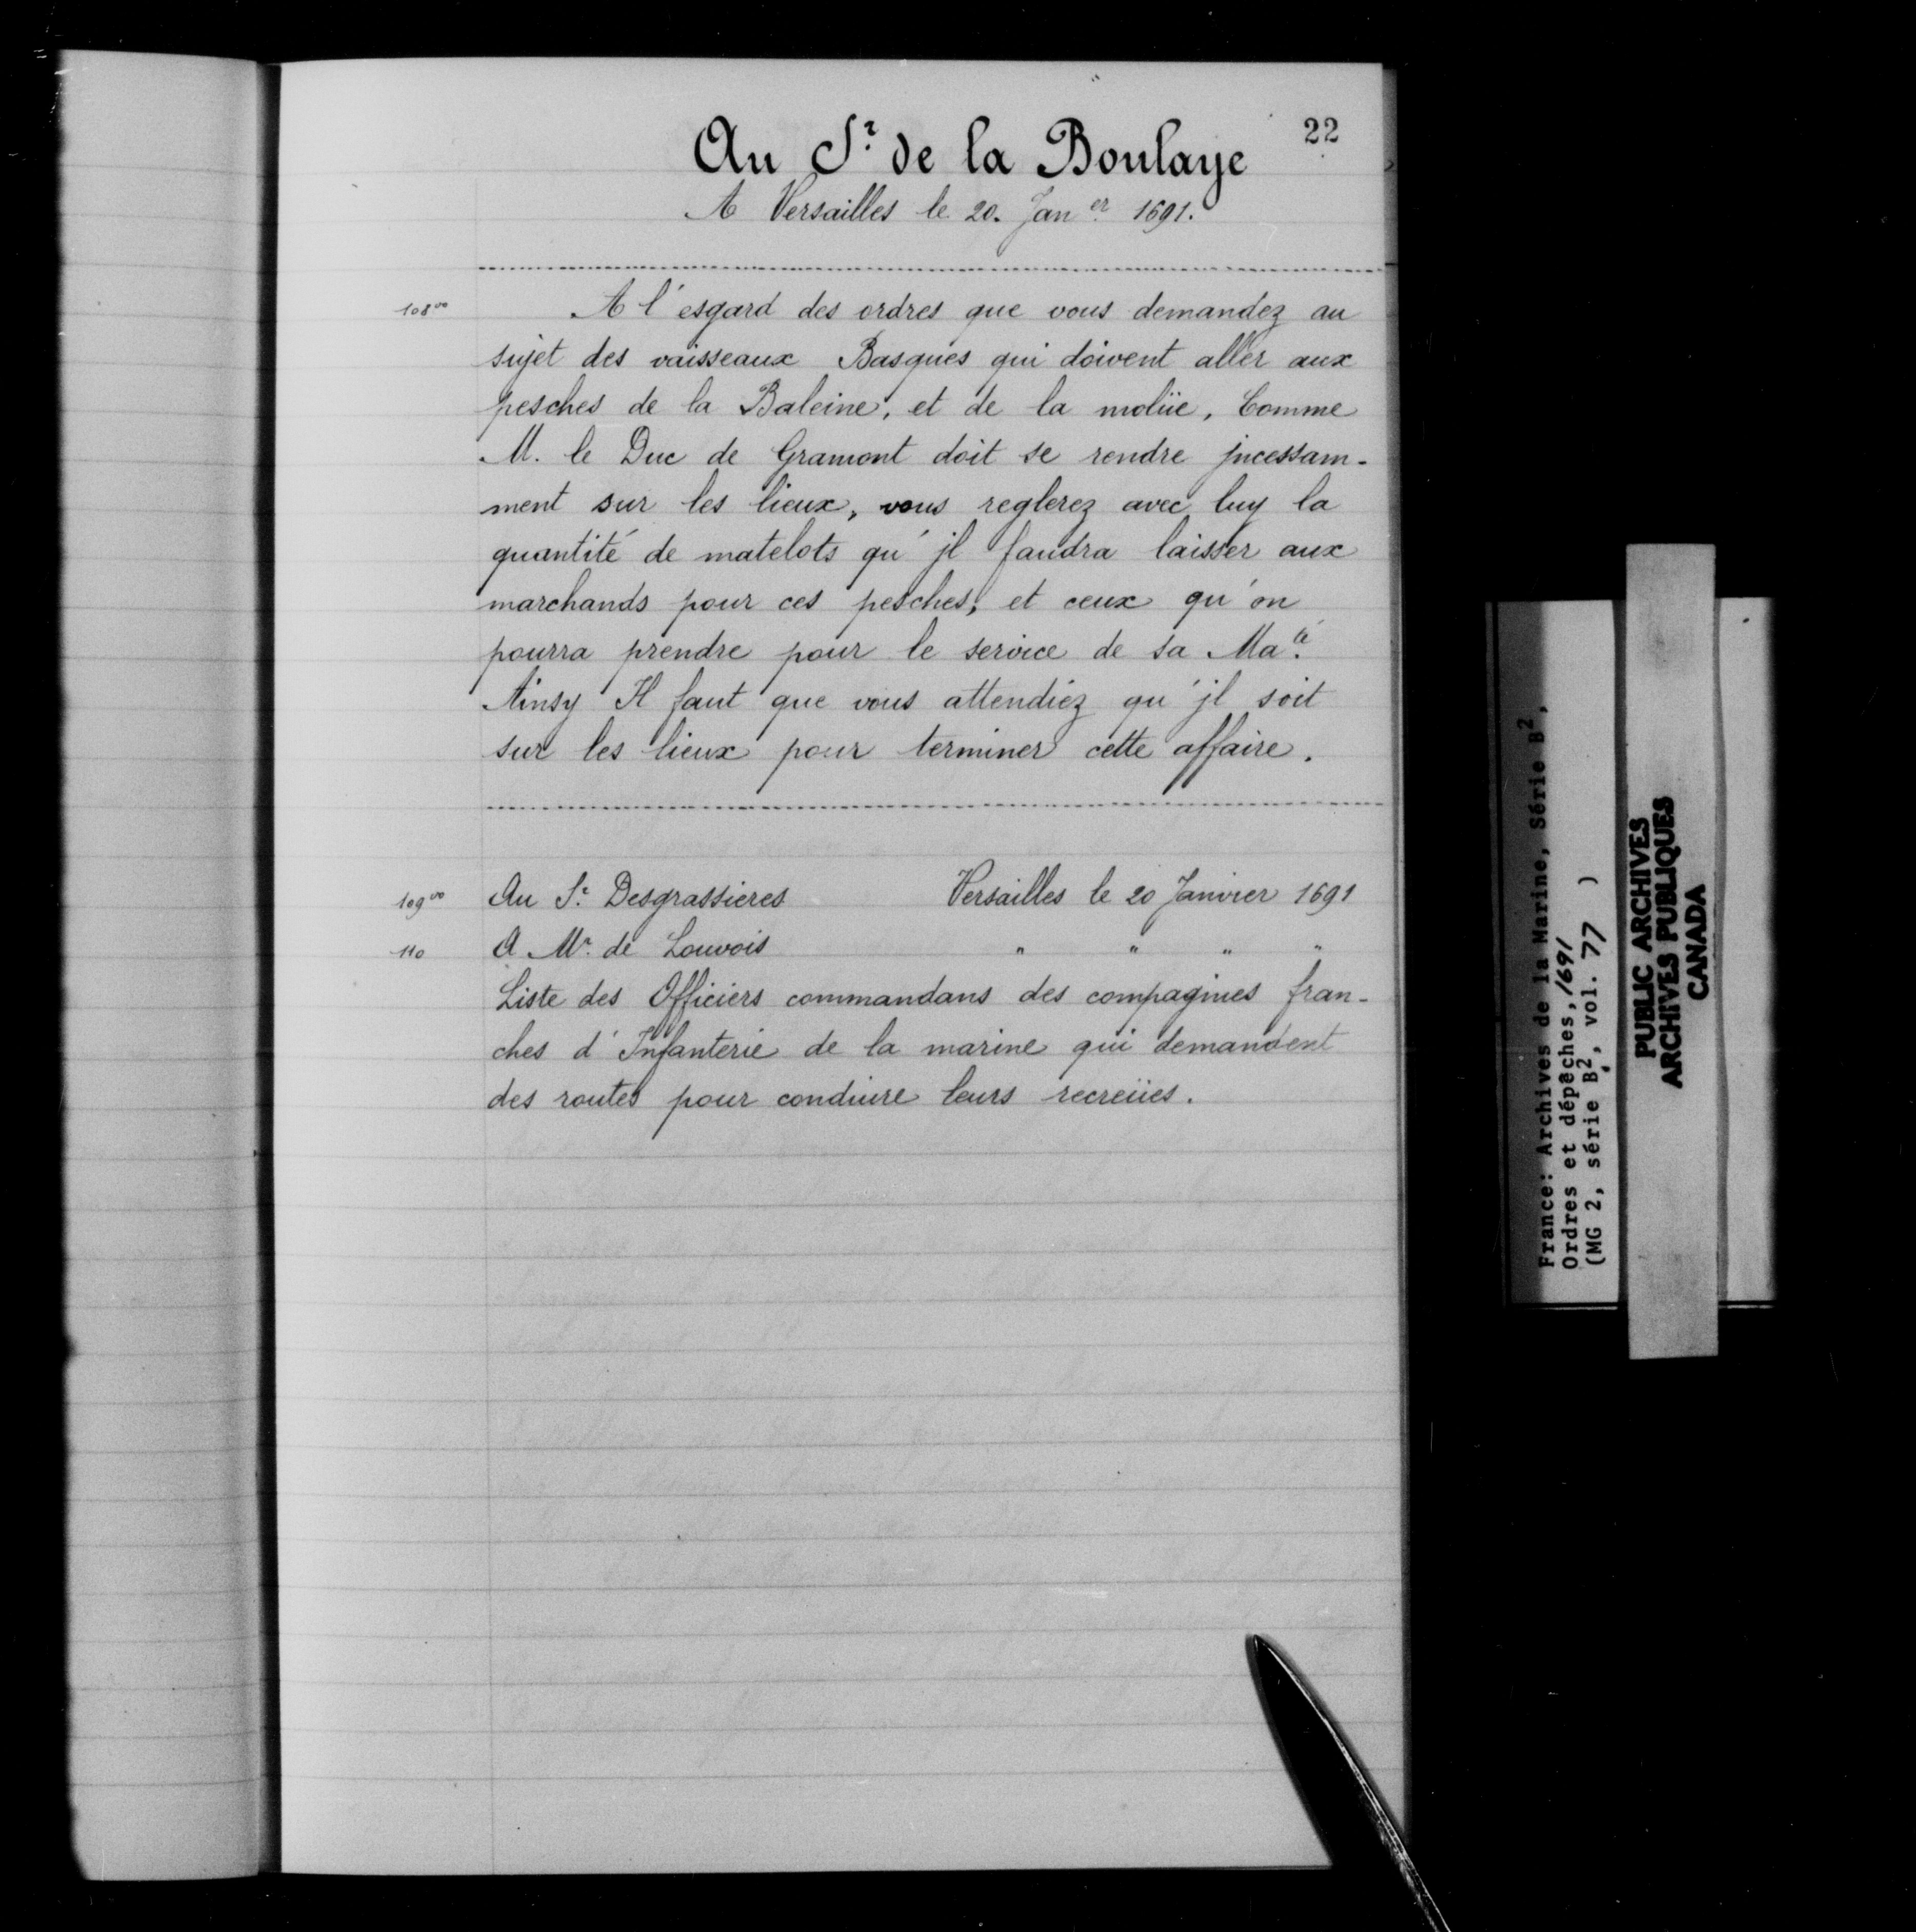 22
Au Sr. de la Boulaye
A Versailles le 20. Janer. 1691.
108vo
A l'esgard des ordres que vous demandez au
sujet des vaisseaux Basques qui doivent aller aux
pesches de la Baleine, et de la molüe, Comme
M. le Duc de Gramont doit se rendre jncessam-
ment sur les lieux, vous reglerez avec luy la
quantité de matelots qu'jl faudra laisser aux
marchands pour ces pesches, et ceux qu'on
pourra prendre pour le service de sa Maté.
Ainsy Il faut que vous attendiez qu'jl soit
sur les lieux pour terminer cette affaire.
109vo Au Sr. Desgrassieres Versailles le 20 Janvier 1691
110 A Mr. de Louvois " " " "
Liste des Officiers commandans des compagnies fran-
ches d'Infanterie de la marine qui demandent
des routes pour conduire leurs recreües.
France: Archives de la Marine, Série B2,
Ordres et dépêches, 1691
(MG 2, série B2, vol. 77 )
PUBLIC ARCHIVES
ARCHIVES PUBLIQUES
CANADA